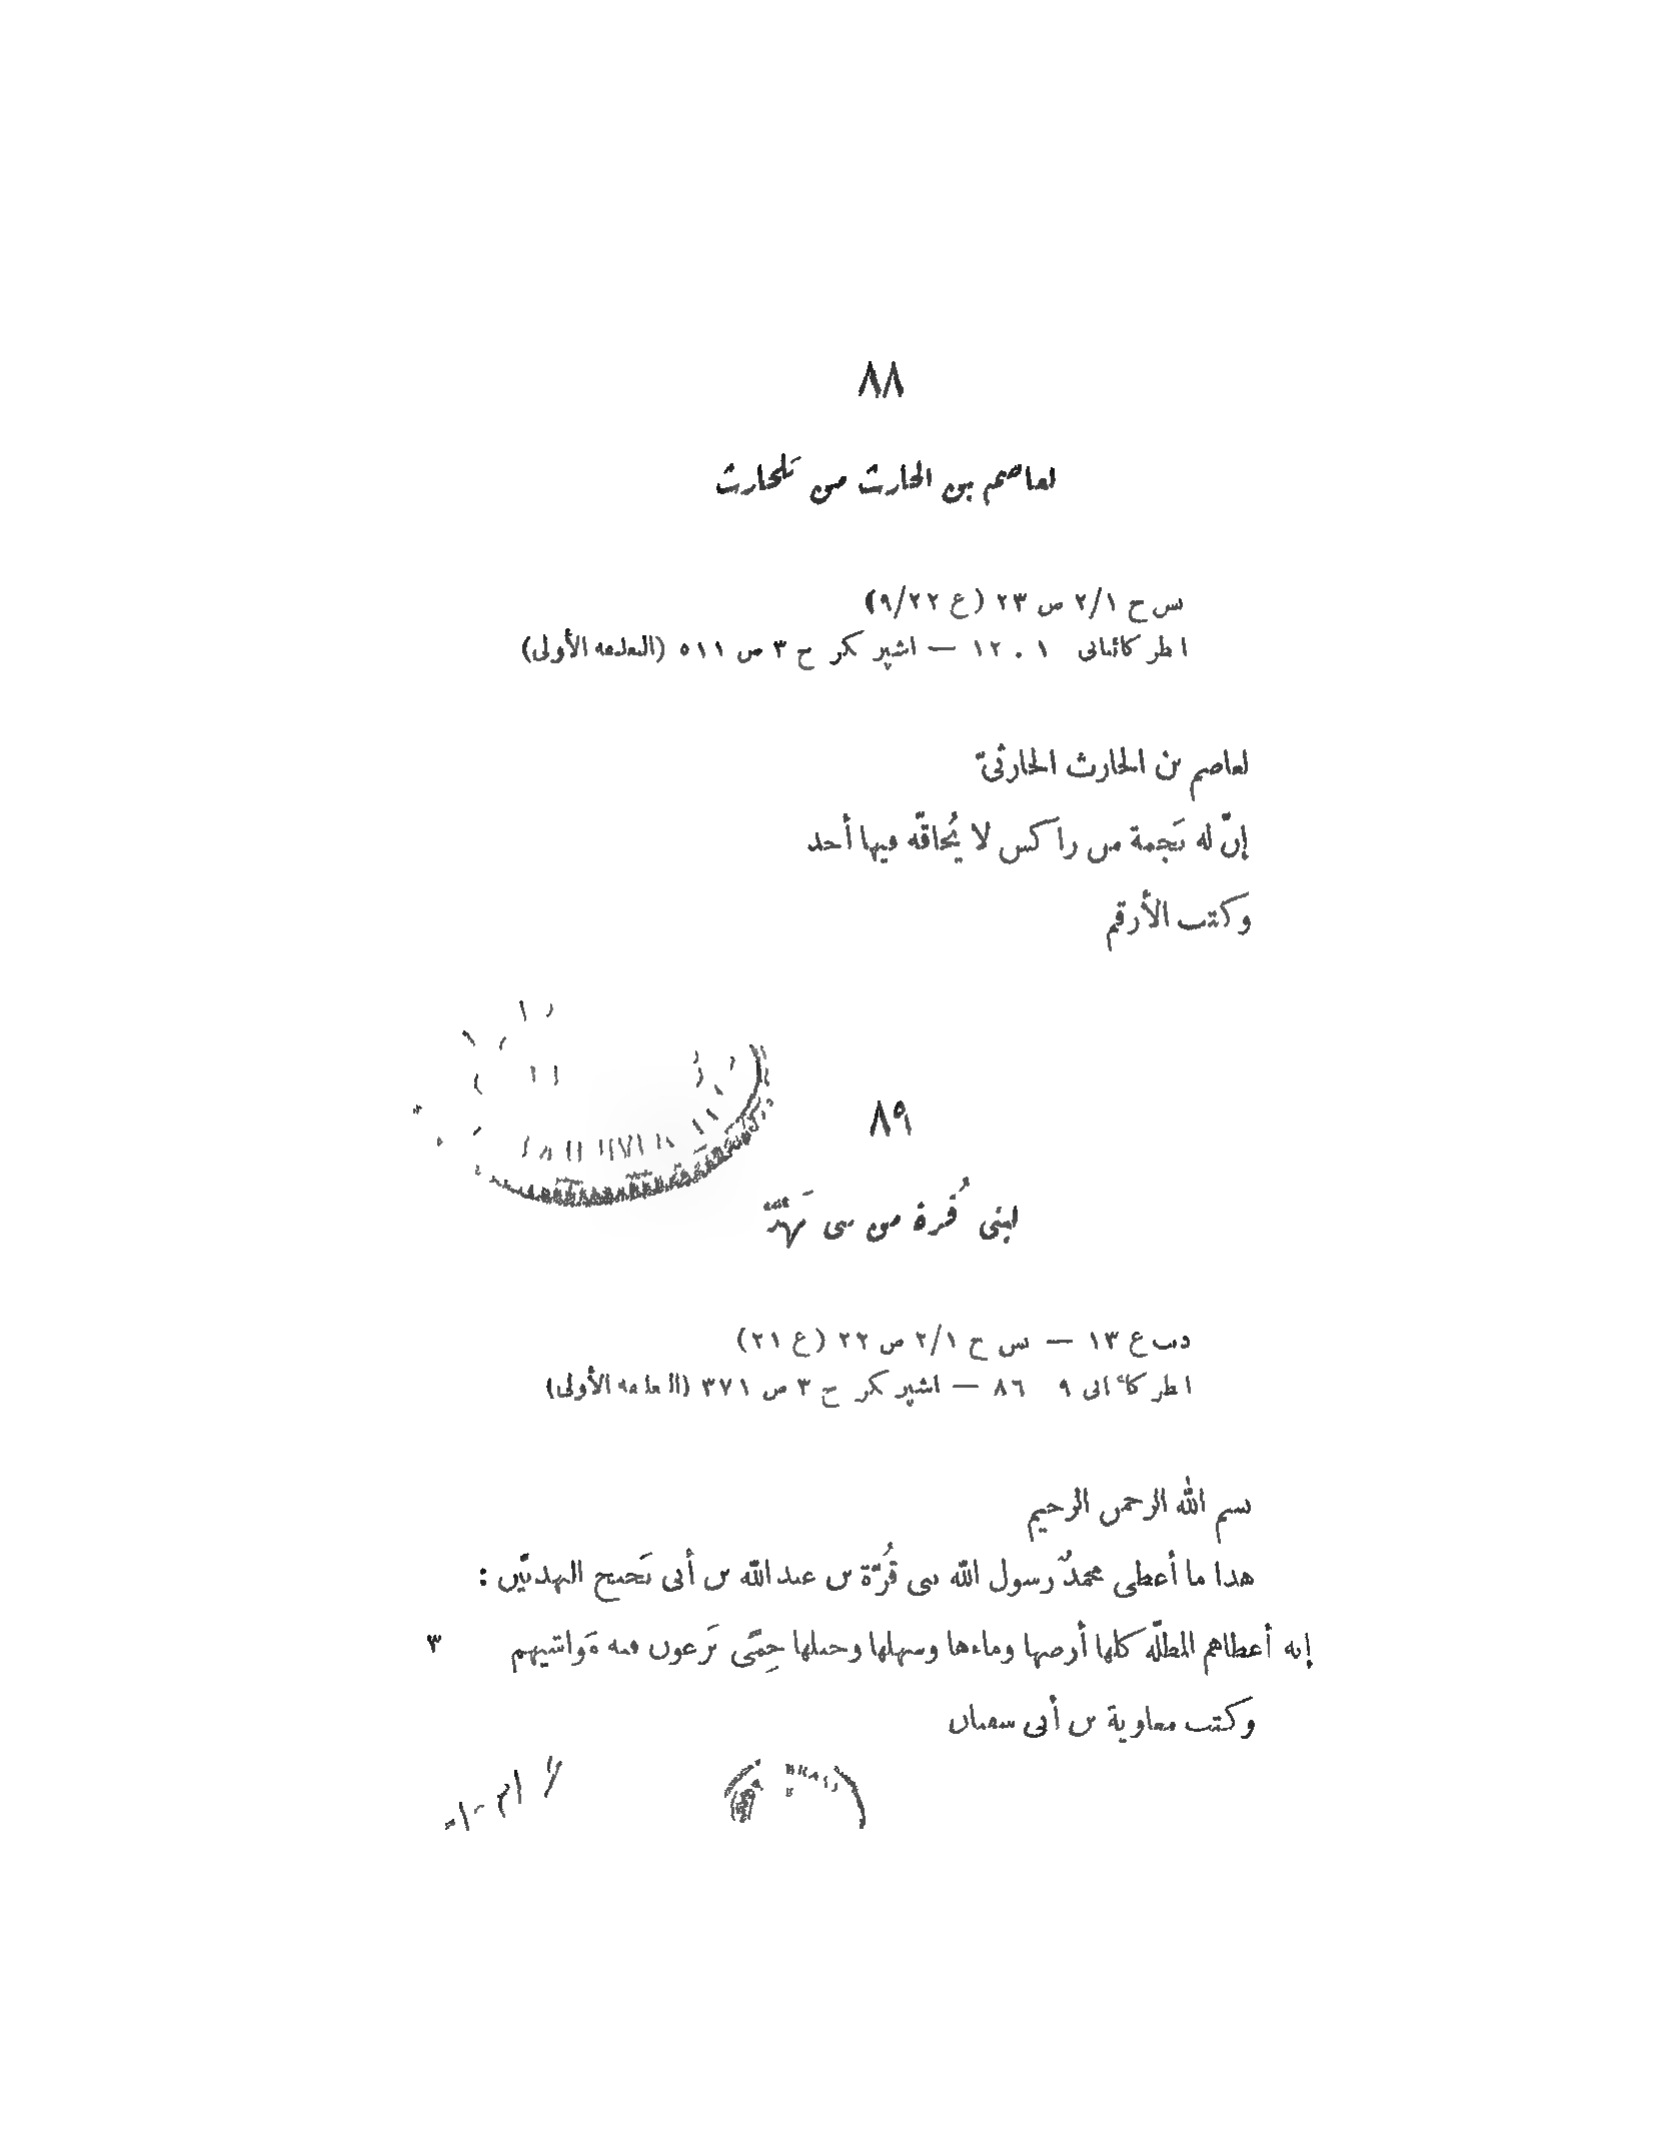 ٨٨
لعاصم بن الحارث من بَلحارث
بس ج ٢/١ ص ٢٣ (ع ٩/٢٢)
انظر كائتانى ١٠ . ١٢ — اشپر نكر ج ٣ ص ٥١١ (التعليقة الأولى)
لعاصم بن الحارث الحارثىّ
إنّ له نَجمة من راكس لا يُحاقّه فيها أحد
وكتب الأرقم
٨٩
لبنى قُرة من بنى نَهد
دب ع ١٣ — بس ج ٢/١ ص ٢٢ (ع ٢١)
انظر كائتانى ٩ ٨٦ — اشپر نكر ج ٣ ص ٣٧١ (التعليقة الأولى)
بسم الله الرحمن الرحيم
هذا ما أعطى محمدٌ رسول الله بنى قُرّة بن عبد الله بن أبى نَجيح النهديّين :
إنه أعطاهم المظلّة كلها أرضها وماءها وسهلها وجبلها حِمًى يَرعون فيه مَواشيهم ٣
وكتب معاوية بن أبى سفيان